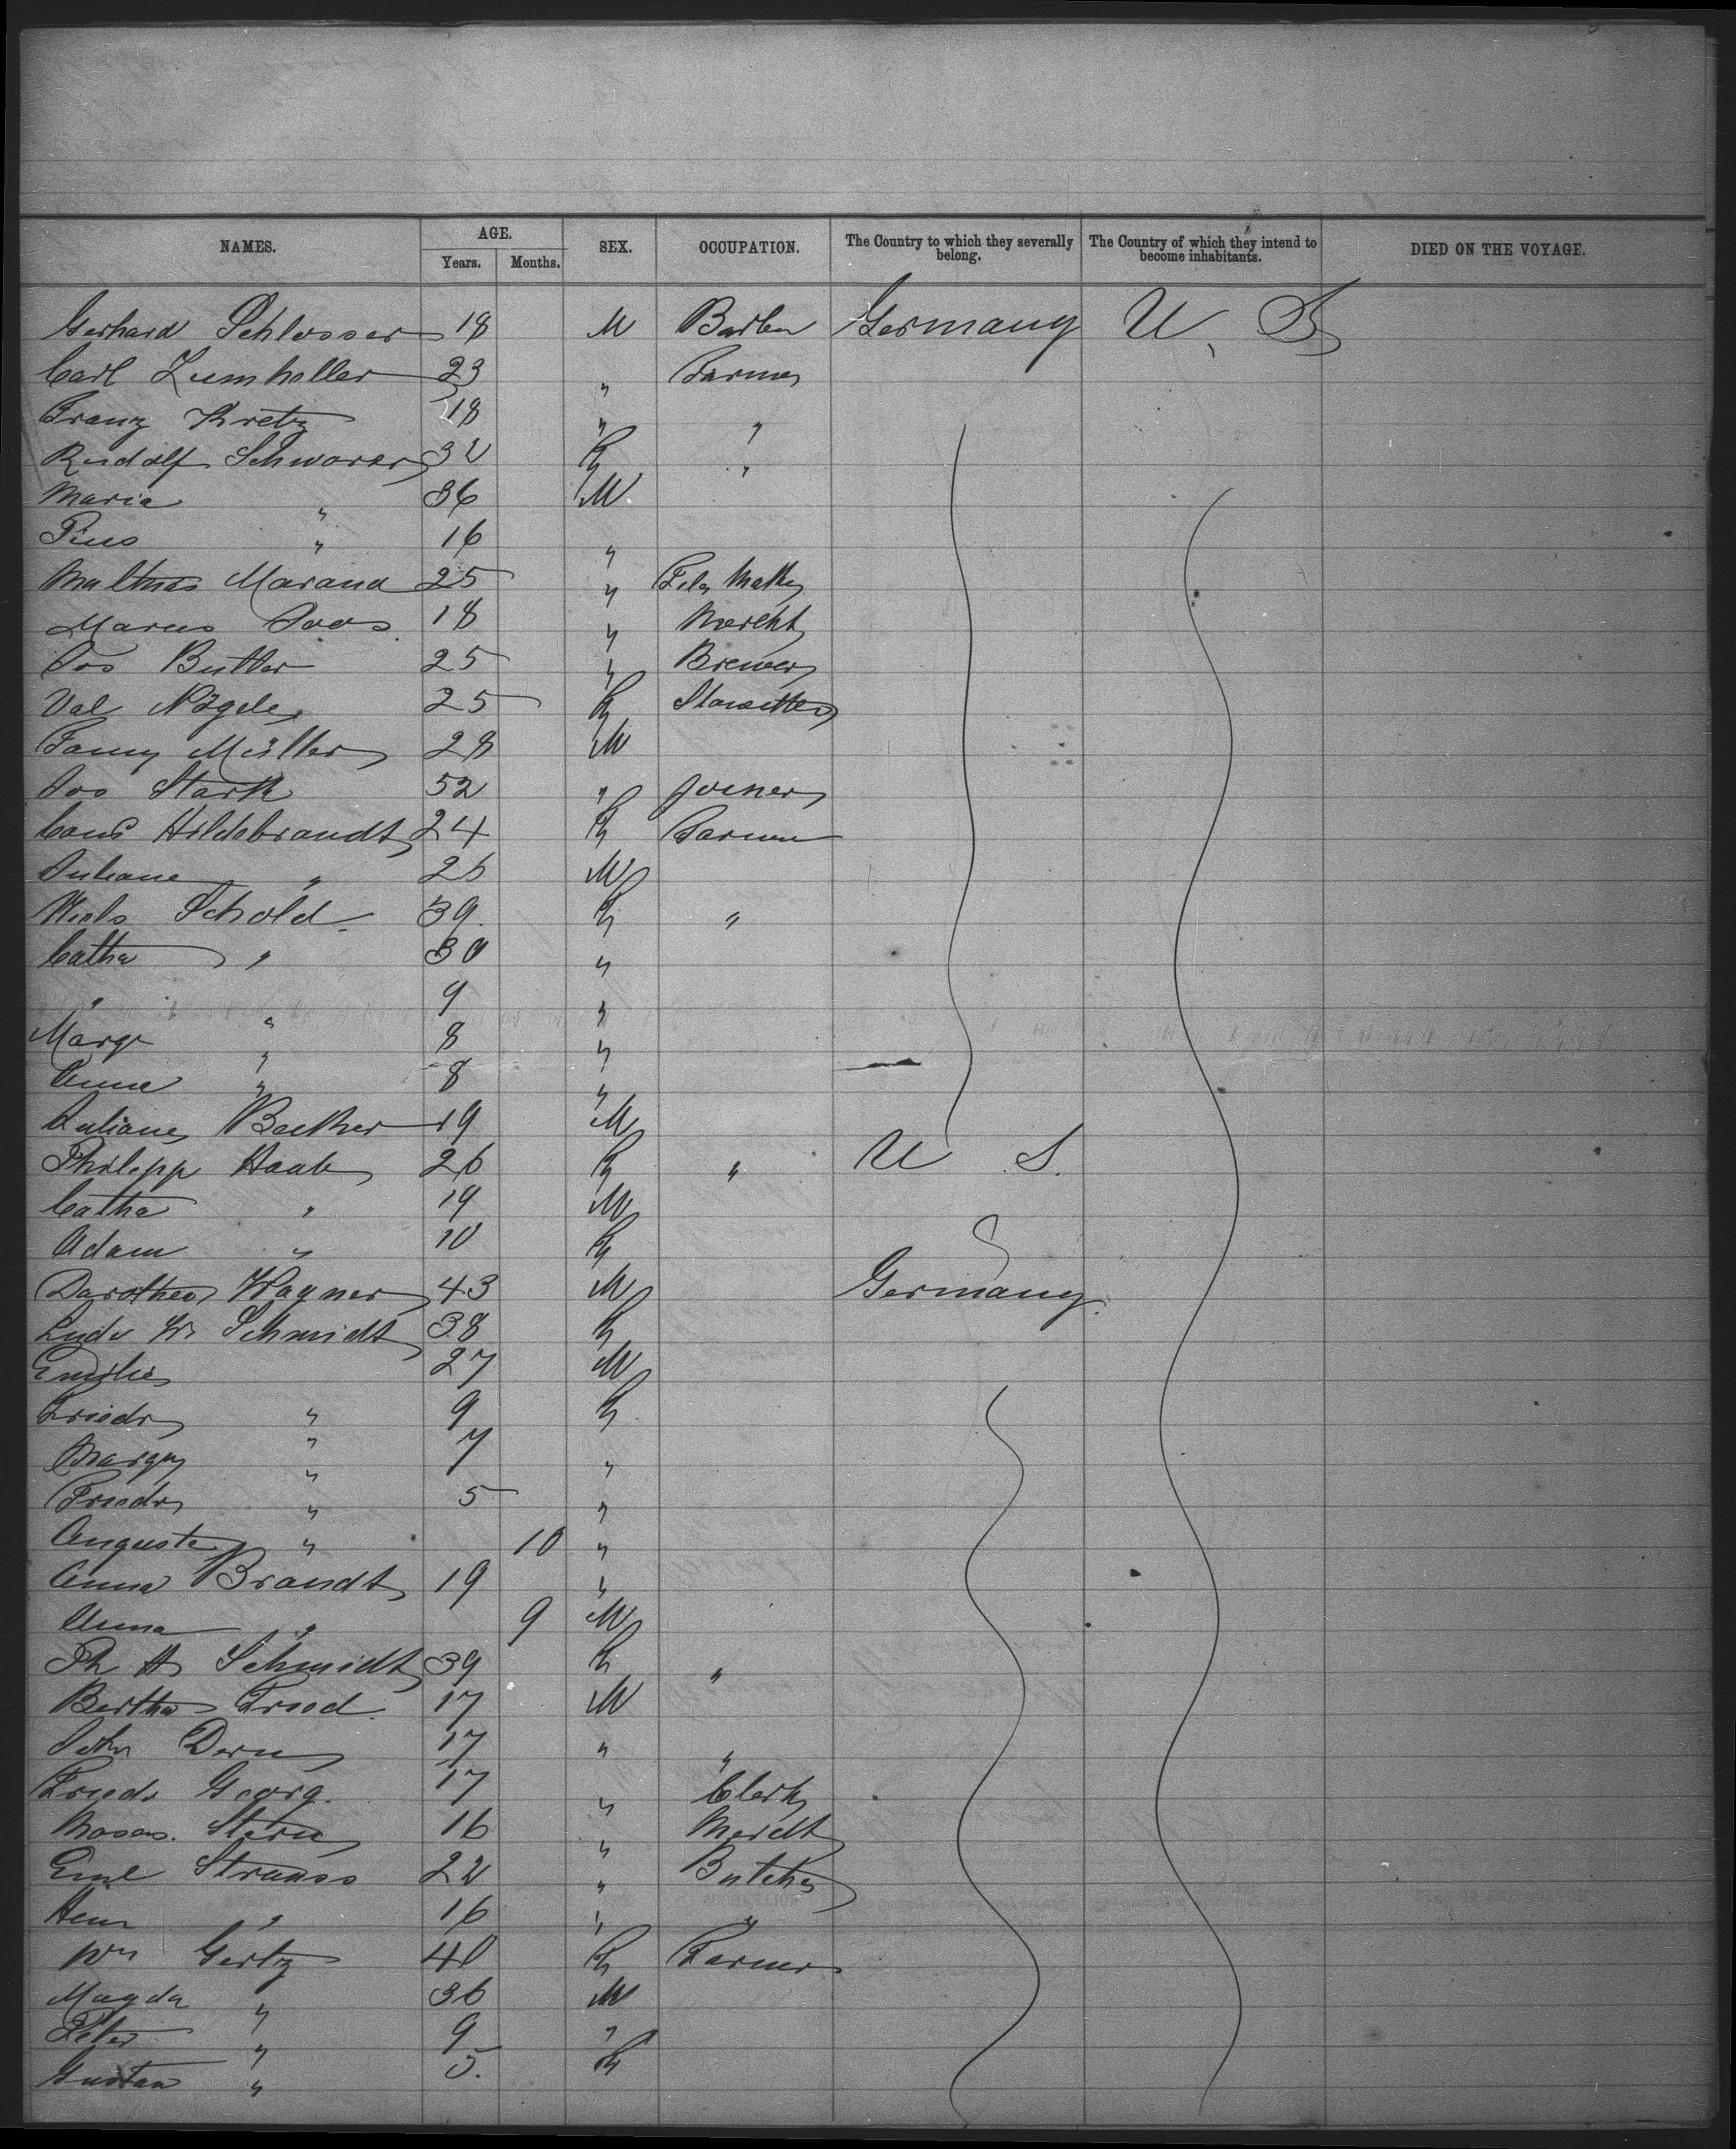 NAMES. AGE. SEX. OCCUPATION. The Country to which they severally belong. The Country of which they intend to become inhabitants. DIED ON THE VOYAGE.
Years. Months.
Gerhard Schlosser 18 M Barber Germany U. S.
Carl Zumhaller 23 " Farmer
Franz Kretz 18 " "
Rudolf Schwarer 32 "
Maria " 36 M
Pius " 16 "
Mathias Marana 25 "
Marus Joos 18 " Mercht
Jos Butter 25 " Brewer
Val Nägele 25
Fanny Müller 28 M
Jos Stark 52 " Joiner
Hildebrandt 24 Farmer
Juliane " 26 M
Niels Schold 39 "
Catha " 30 "
" " 9 "
Margr " 8 "
Anna " 8 "
Juliane Becker 19 M
Philipp Haab 26 " U S.
Catha " 19 M
Adam " 10
Darothea Wagner 43 M Germany
Ludv W. Schmidt 38
Emilie 27 M
Friedr " 9
Margr " 7 "
Friedr " 5 "
Auguste " 10 "
Anna Brandt 19 "
Anna " 9 M
Ph H Schmidt 39 "
Bertha Fried 17 M
Dern 17 " "
Friedr Georg. 17 " Clerk
Moses. Stern 16 " Mercht
Emil Strauss 22 " Butcher
Henr " 16 " "
Wm Gertz 40 Farmer
Magda " 36 M
Peter " 9 "
Gustav " 5.